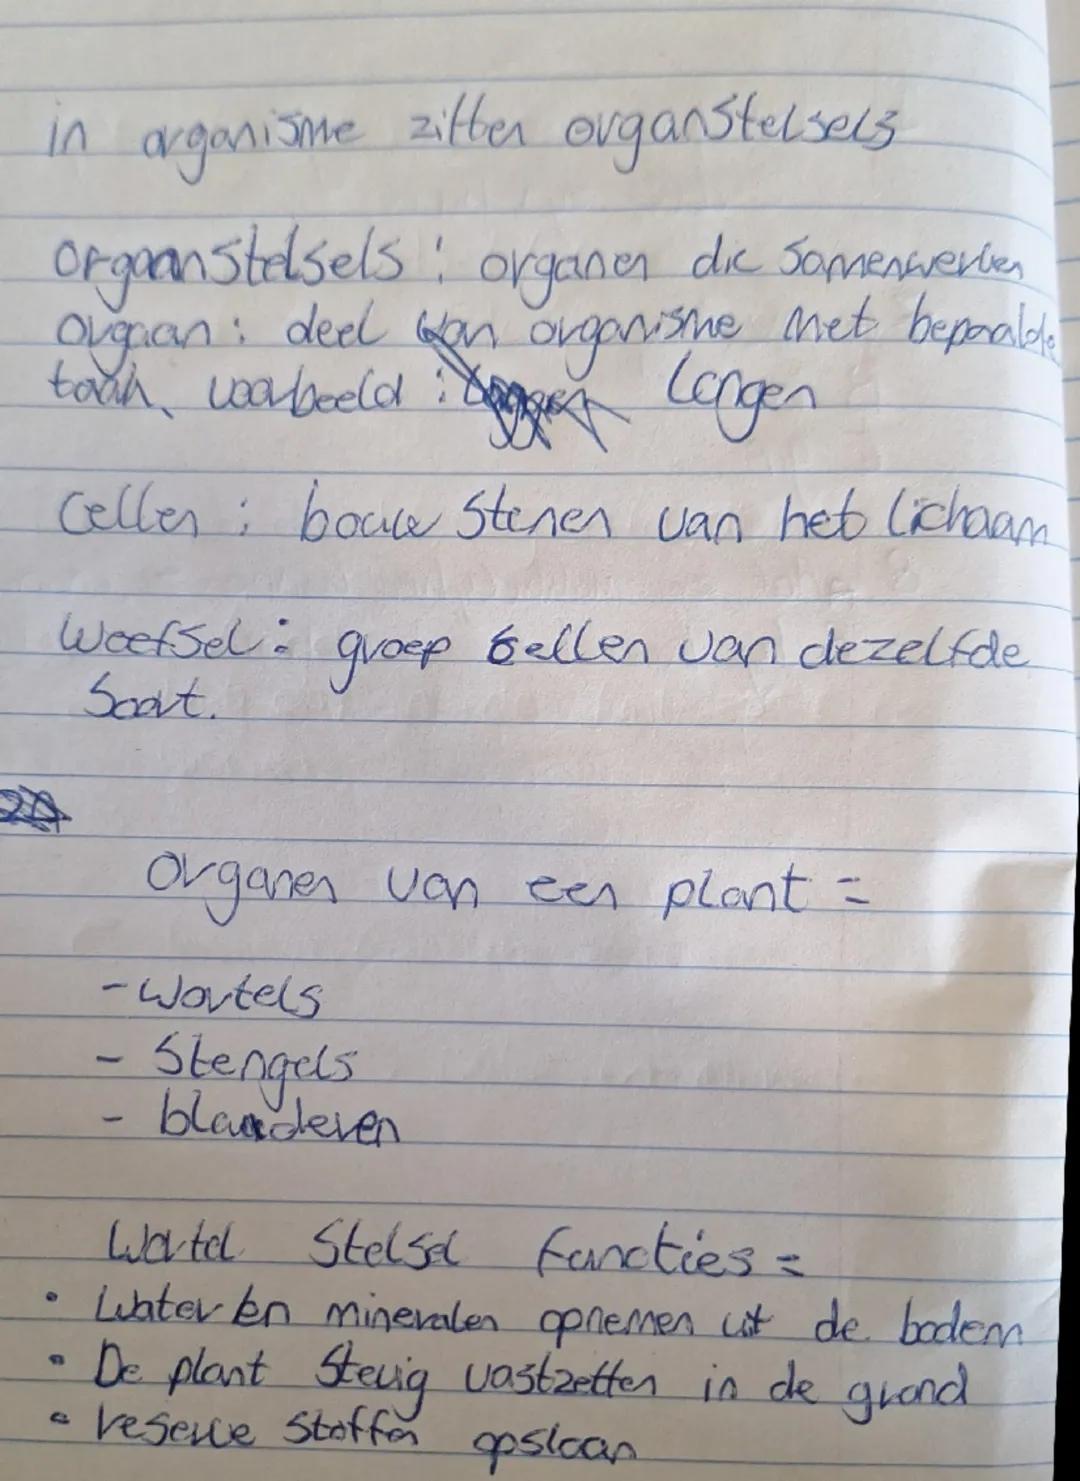 in organisme zitten organstelsels
orgaanstelsels : organen die samenwerken
orgaan : deel van organisme met bepaalde
taak, voorbeeld : longen
Cellen : bouw stenen van het lichaam
Weefsel : groep cellen van dezelfde
Soort.
Organen van een plant =
- Wortels
- Stengels
- bladeren
Wortel Stelsel functies =
• Water en mineralen opnemen uit de bodem
• De plant Stevig vastzetten in de grond
• reserve Stoffen opslaan